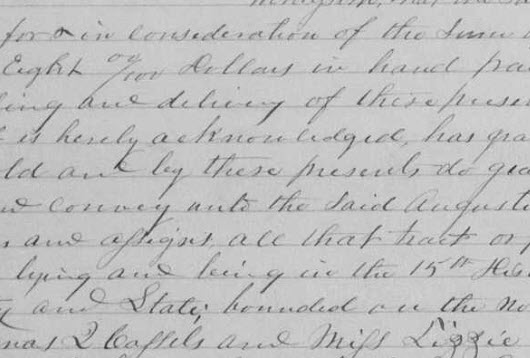 for & in consideration of the Sum
Eight 00/100 Dollars in hand pa
ling and delivery of these prese
t is hereby acknowledged, has gra
ld and by these presents do gra
nd convey unto the said August
s and assigns, all that tract or p
lying and being in the 15th Dis
ty and State, bounded on the No
mas L Cassels and Miss Lizzie